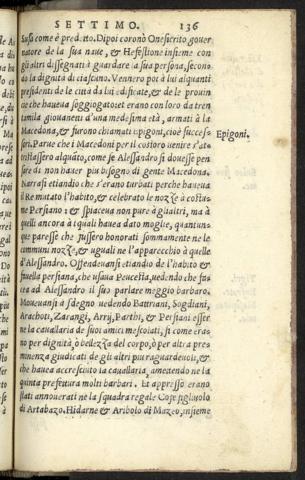 SETTIMO. 136
Susa come è predetto. Dipoi coronò Onesicrito, gouer
natore de la sua naue, & Hefestione insieme con
gli altri dissegnati à guardare la sua persona, secon
do la dignità di ciascuno. Vennero poi à lui alquanti
presidenti de le città da lui edificate, & de le prouin
cie che haueua soggiogate: et erano con loro da tren
tamila giouanetti d'una medesima età, armati à la
Macedona, & furono chiamati Epigoni, cioè succes
sori. Parue che i Macedoni per il costoro uenire s'at=
tristassero alquãto, come se Alessandro si douesse pen
sare di non hauer piu bisogno di gente Macedona.
Epigoni.
Narrasi etiandio che s'erano turbati perche haueua
il Re mutato l'habito, & celebrato le nozze à costu=
me Persiano: & spiaceua non pure à gli altri, ma à
quelli ancora à i quali haueua dato moglie, quantun=
que paresse che fussero honorati sommamente ne le
communi nozze, & uguali ne l'apparecchio à quelle
d'Alessandro. Offendeuansi etiandio de l'habito &
fauella persiana, che usaua Peucesta, uedendo che fus=
se ad Alessandro il suo parlare meggio barbaro.
Moueuansi à sdegno uedendo Battriani, Sogdiani,
Arachoti, Zarangi, Arrij, Parthi, & Persiani esser
ne la cauallaria de suoi amici mescolati, si come era=
no per dignità, ò bellezza del corpo, ò per altra pre=
minenza giudicati de gli altri piu raguardeuoli, &
che haueua accresciuto la cauallaria, mettendo ne la
quinta prefettura molti barbari. Et appresso erano
stati annouerati ne la squadra regale Cofe figliuolo
di Artabazo, Hidarne & Aribolo di Mazeo, insieme